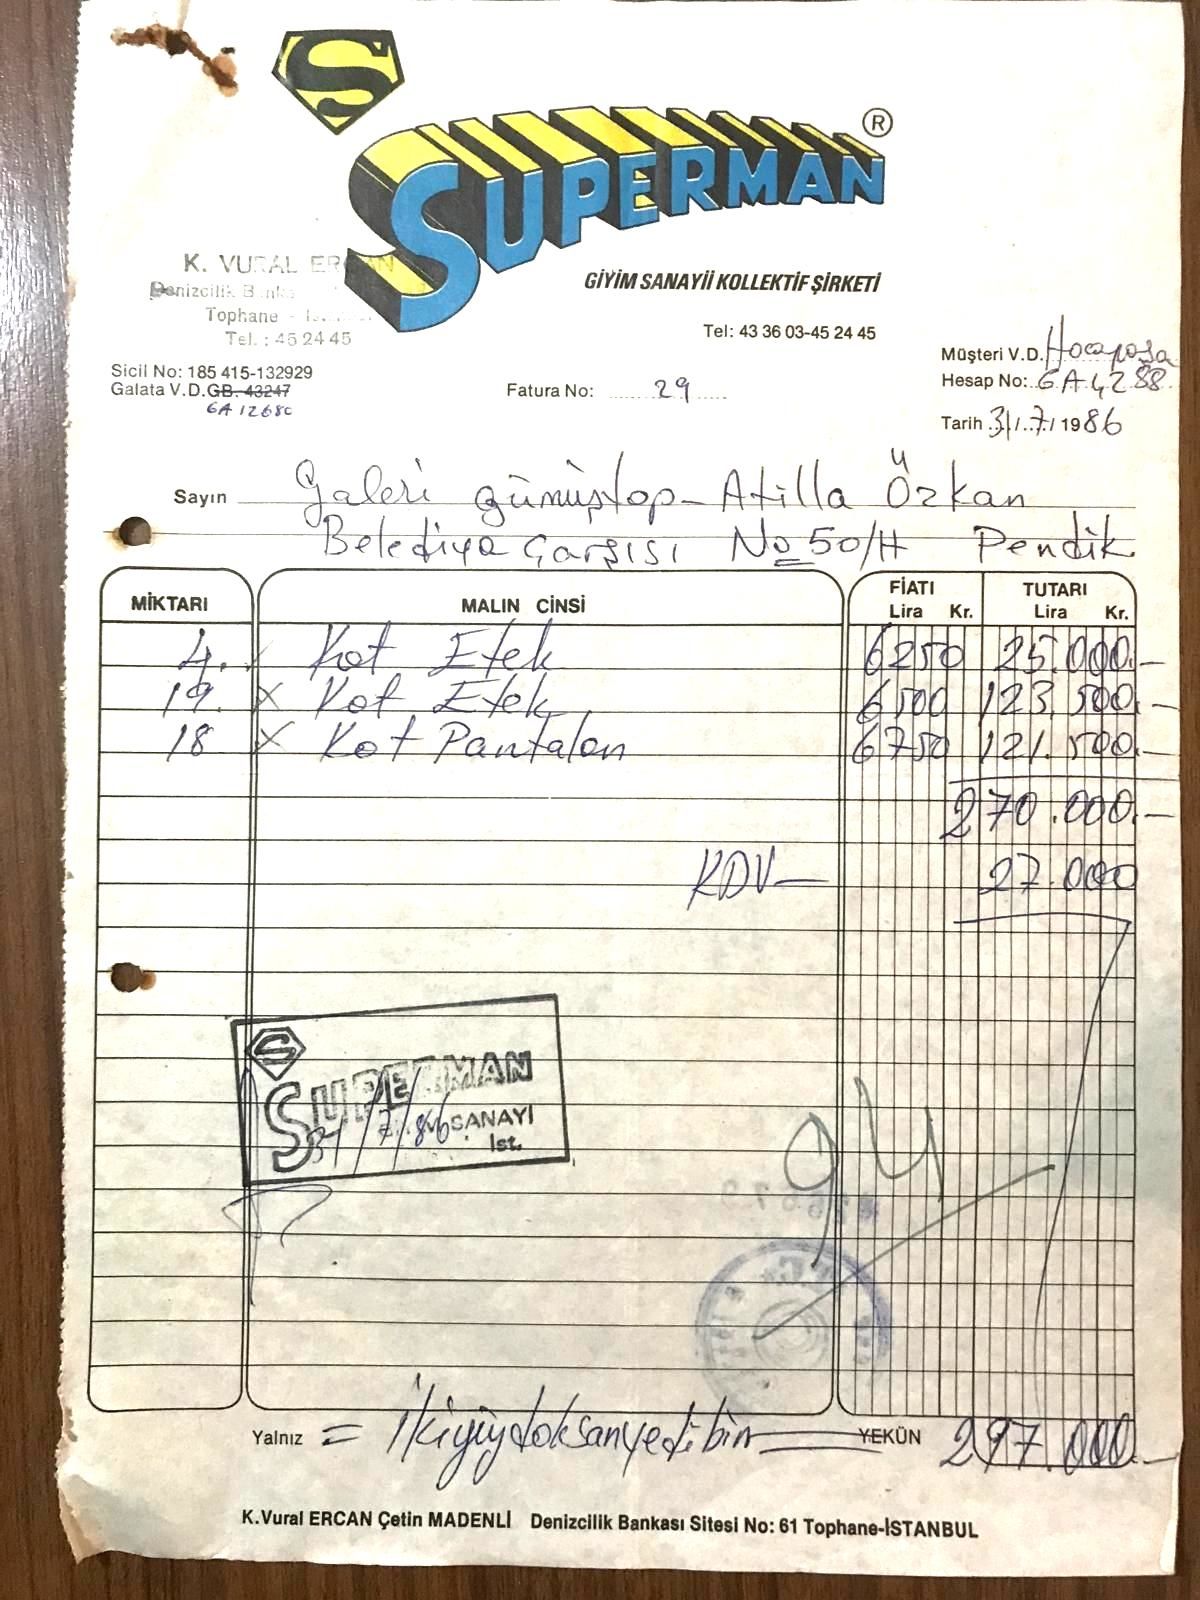 S
SUPERMAN ®
GİYİM SANAYİİ KOLLEKTİF ŞİRKETİ
Tel: 43 36 03-45 24 45
K. VURAL ERCAN
Denizcilik
Tophane -
Tel. : 45 24 45
Sicil No: 185 415-132929
Galata V.D. GB. 43247
6A 12680
Fatura No: 29
Müşteri V.D. Hocapaşa
Hesap No: 6A4288
Tarih 31/7/1986
Sayın Galeri Gümüştop - Atilla Özkan
Belediye Çarşısı No 50/H Pendik
MİKTARI MALIN CİNSİ FİATI Lira Kr. TUTARI Lira Kr.
4. Kot Etek 6250 25.000.-
19. x Kot Etek 6500 123.500.-
18 x Kot Pantalon 6750 121.500.-
270.000.-
KDV— 27.000
S
SUPERMAN
SANAYİ
31/7/86
İst.
94
Yalnız = İkiyüzdoksanyedibin= YEKÜN 297.000.-
K.Vural ERCAN Çetin MADENLİ Denizcilik Bankası Sitesi No: 61 Tophane-İSTANBUL